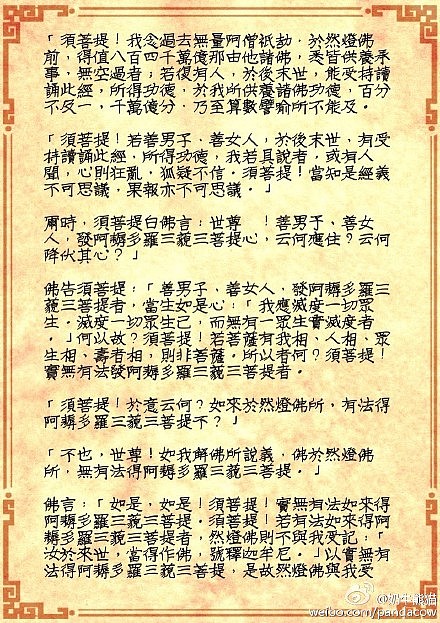 「須菩提！我念過去無量阿僧祇劫，於然燈佛
前，得值八百四千萬億那由他諸佛，悉皆供養承
事，無空過者；若復有人，於後末世，能受持讀
誦此經，所得功德，於我所供養諸佛功德，百分
不及一，千萬億分、乃至算數譬喻所不能及。
「須菩提！若善男子、善女人，於後末世，有受
持讀誦此經，所得功德，我若具說者，或有人
聞，心則狂亂，狐疑不信。須菩提！當知是經義
不可思議，果報亦不可思議。」
爾時，須菩提白佛言：世尊　！善男子、善女
人，發阿耨多羅三藐三菩提心，云何應住？云何
降伏其心？」
佛告須菩提：「善男子、善女人，發阿耨多羅三
藐三菩提者，當生如是心：「我應滅度一切眾
生。滅度一切眾生已，而無有一眾生實滅度者
。」何以故？須菩提！若菩薩有我相、人相、眾
生相、壽者相，則非菩薩。所以者何？須菩提！
實無有法發阿耨多羅三藐三菩提者。
「須菩提！於意云何？如來於然燈佛所，有法得
阿耨多羅三藐三菩提不？」
「不也，世尊！如我解佛所說義，佛於然燈佛
所，無有法得阿耨多羅三藐三菩提。」
佛言：「如是，如是！須菩提！實無有法如來得
阿耨多羅三藐三菩提。須菩提！若有法如來得阿
耨多羅三藐三菩提者，然燈佛則不與我受記：「
汝於來世，當得作佛，號釋迦牟尼。」以實無有
法得阿耨多羅三藐三菩提，是故然燈佛與我受
@奶牛熊猫
weibo.com/pandacow